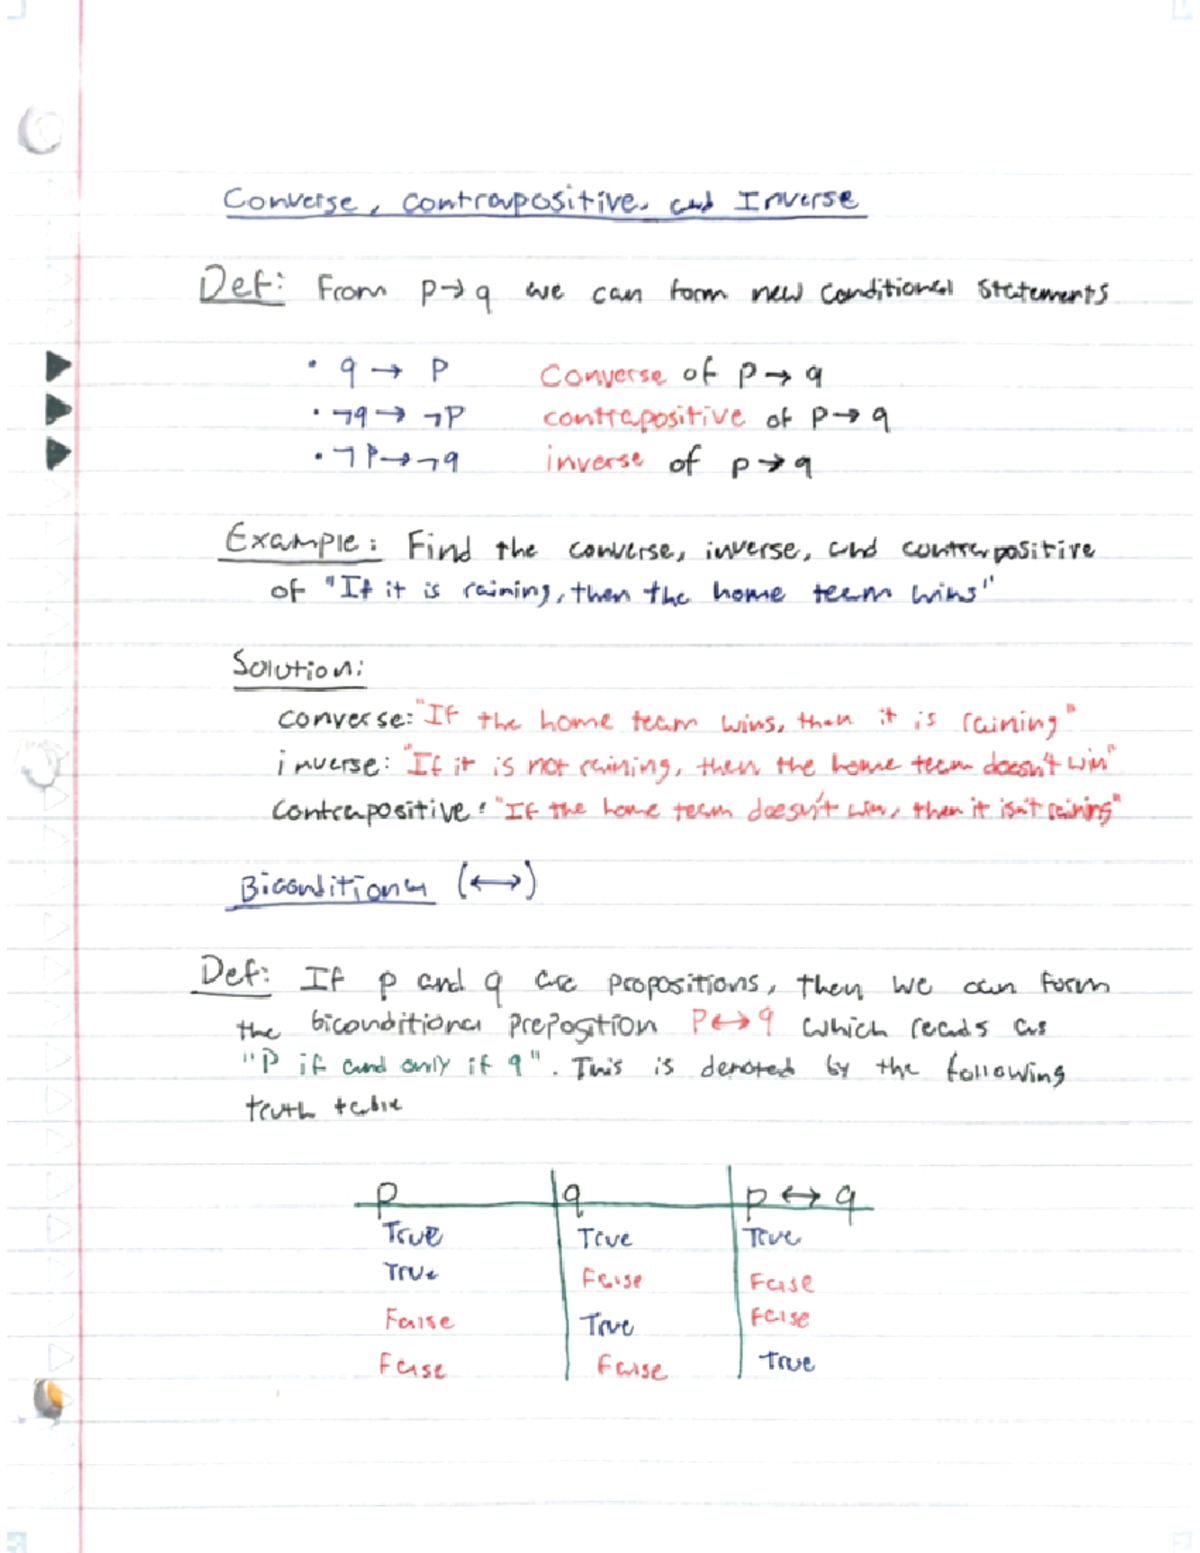 Converse, contrapositive, and Inverse
Def: From p→q we can form new conditional statements
• q → p Converse of p→q
• ¬q → ¬p contrapositive of p→q
• ¬p→¬q inverse of p→q
Example: Find the converse, inverse, and contrapositive
of "If it is raining, then the home team wins"
Solution:
converse: "If the home team wins, then it is raining"
inverse: "If it is not raining, then the home team doesn't win"
contrapositive: "If the home team doesn't win, then it isn't raining"
Biconditional (↔)
Def: If p and q are propositions, then we can form
the biconditional preposition P↔q which reads as
"P if and only if q". This is denoted by the following
truth table
p q p ↔ q
True True True
True False False
False True False
False False True